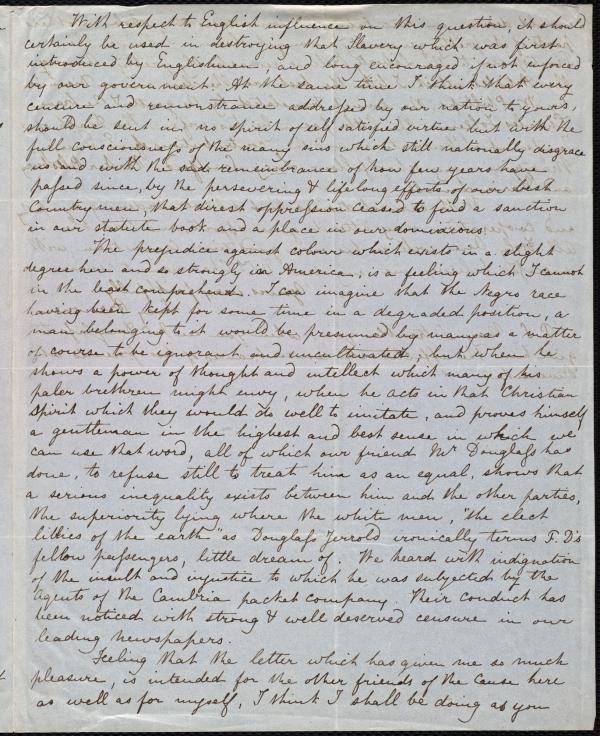 With respect to English influence on this question, it should
certainly be used in destroying that Slavery which was first
introduced by Englishmen, and long encouraged if not enforced
by our government. At the same time I think that every
censure and remonstrance addressed by our nation to yours,
should be sent in no spirit of self satisfied virtue but with the
full consciousness of the many sins which still nationally disgrace
us and with the sad remembrance of how few years have
passed since, by the persevering & lifelong efforts of our best
Countrymen, that direst oppression ceased to find a sanction
in our statute book and a place in our dominions.
The prejudice against colour which exists in a slight
degree here and so strongly in America, is a feeling which I cannot
in the least comprehend. I can imagine that the Negro race
having been kept for some time in a degraded position, a
man belonging to it would be presumed by many as a matter
of course to be ignorant and uncultivated; but when he
shows a power of thought and intellect which many of his
paler brethren might envy, when he acts in that Christian
Spirit which they would do well to imitate, and proves himself
a gentleman in the highest and best sense in which we
can use that word, all of which our friend Mr Douglass has
done, to refuse still to treat him as an equal, shows that
a serious inequality exists between him and the other parties,
the superiority lying where the white men, "the elect
lillies of the earth" as Douglass Jerrold ironically terms F. D's
fellow passengers, little dream of. We heard with indignation
of the insult and injustice to which he was subjected by the
agents of the Cambria packet company. Their conduct has
been noticed with strong & well deserved censure in our
leading newspapers.
Feeling that the letter which has given me so much
pleasure, is intended for the other friends of the Cause here
as well as for myself, I think I shall be doing as you